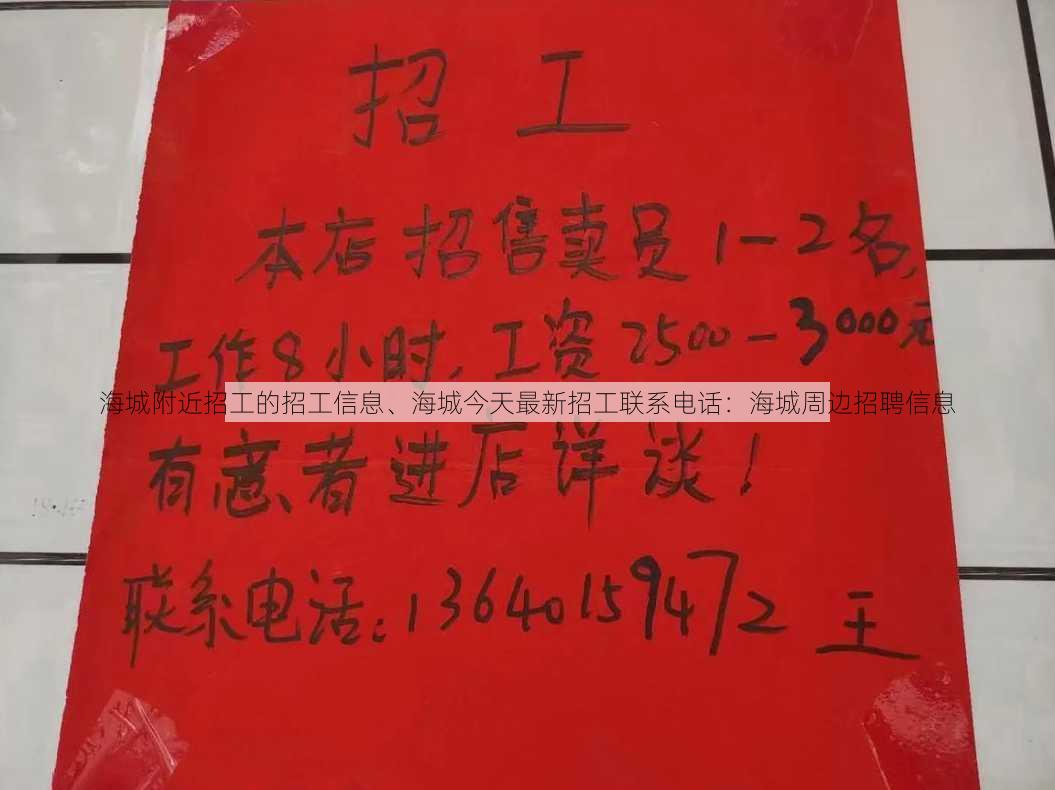 招工
本店招售卖员1-2名,
工作8小时,工资2500-3000元
海城附近招工的招工信息、海城今天最新招工联系电话：海城周边招聘信息
有意者进店详谈!
联系电话:13640159472 王